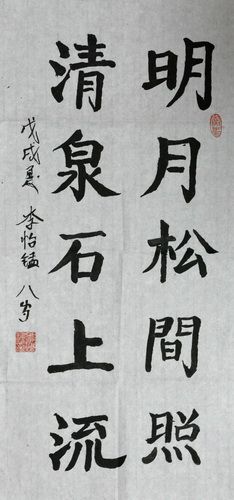 明月松間照
清泉石上流
戊戌夏 李怡锰 八岁